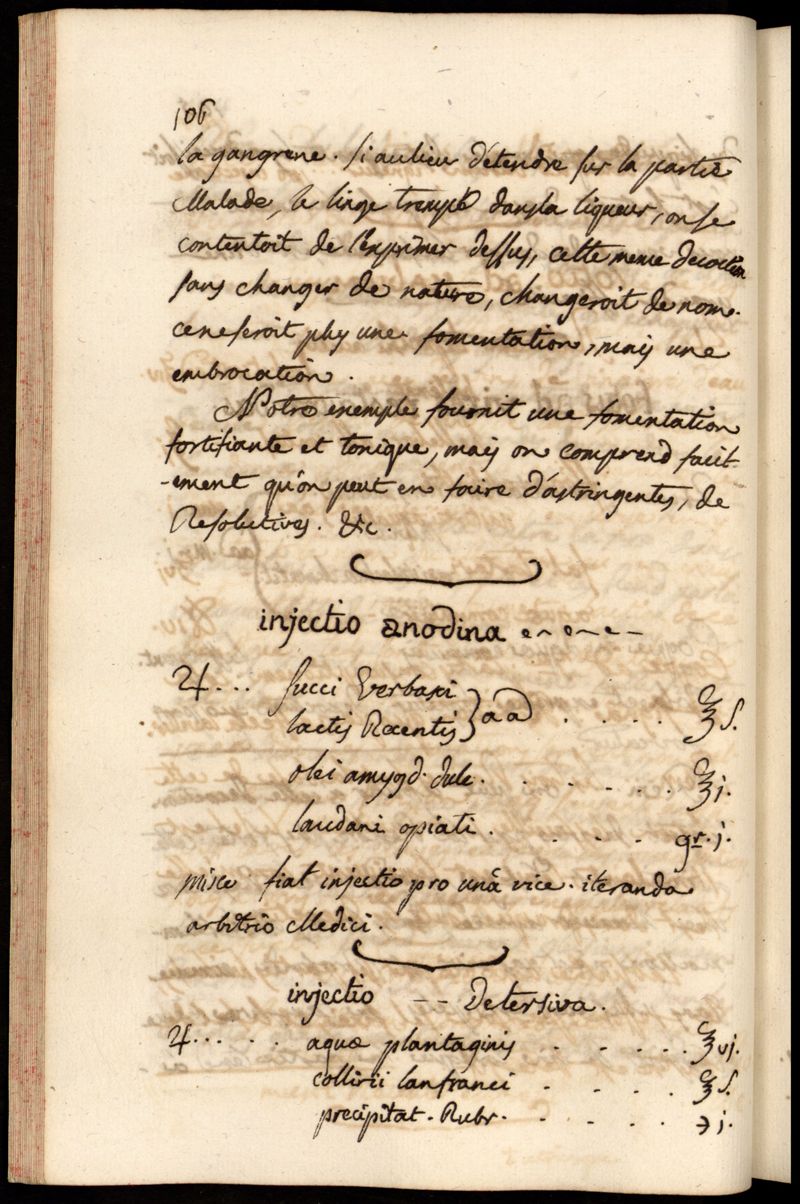 106
la gangrene. si aulieu d'étendre sur la partie
Malade, le linge trempé dansla liqueur, on se
contentoit de l'exprimer dessus, cette meme decoction
sans changer de nature, changeroit de nom.
ceneseroit plus une fomentation, mais une
embrocation.
Notre exemple fournit une fomentation
fortifiante et tonique, mais on comprend facil-
-ement qu'on peut en faire d'astringentes, de
Resolutives. &c.
injectio anodina
♃... succi Verbasci
lactis Recentis } aa . . . . ℥ s.
olei amygd. dulc. . . . . . ℥ j.
laudani opiati . . . . gr. j.
misce fiat injectio pro unâ vice. iteranda
arbitrio Medici.
injectio -- Detersiva.
♃... . . aquæ plantaginis . . . . ℥ vj.
collirii lanfranci . . . . ℥ s.
precipitat. Rubr. . . . . ℈ j.